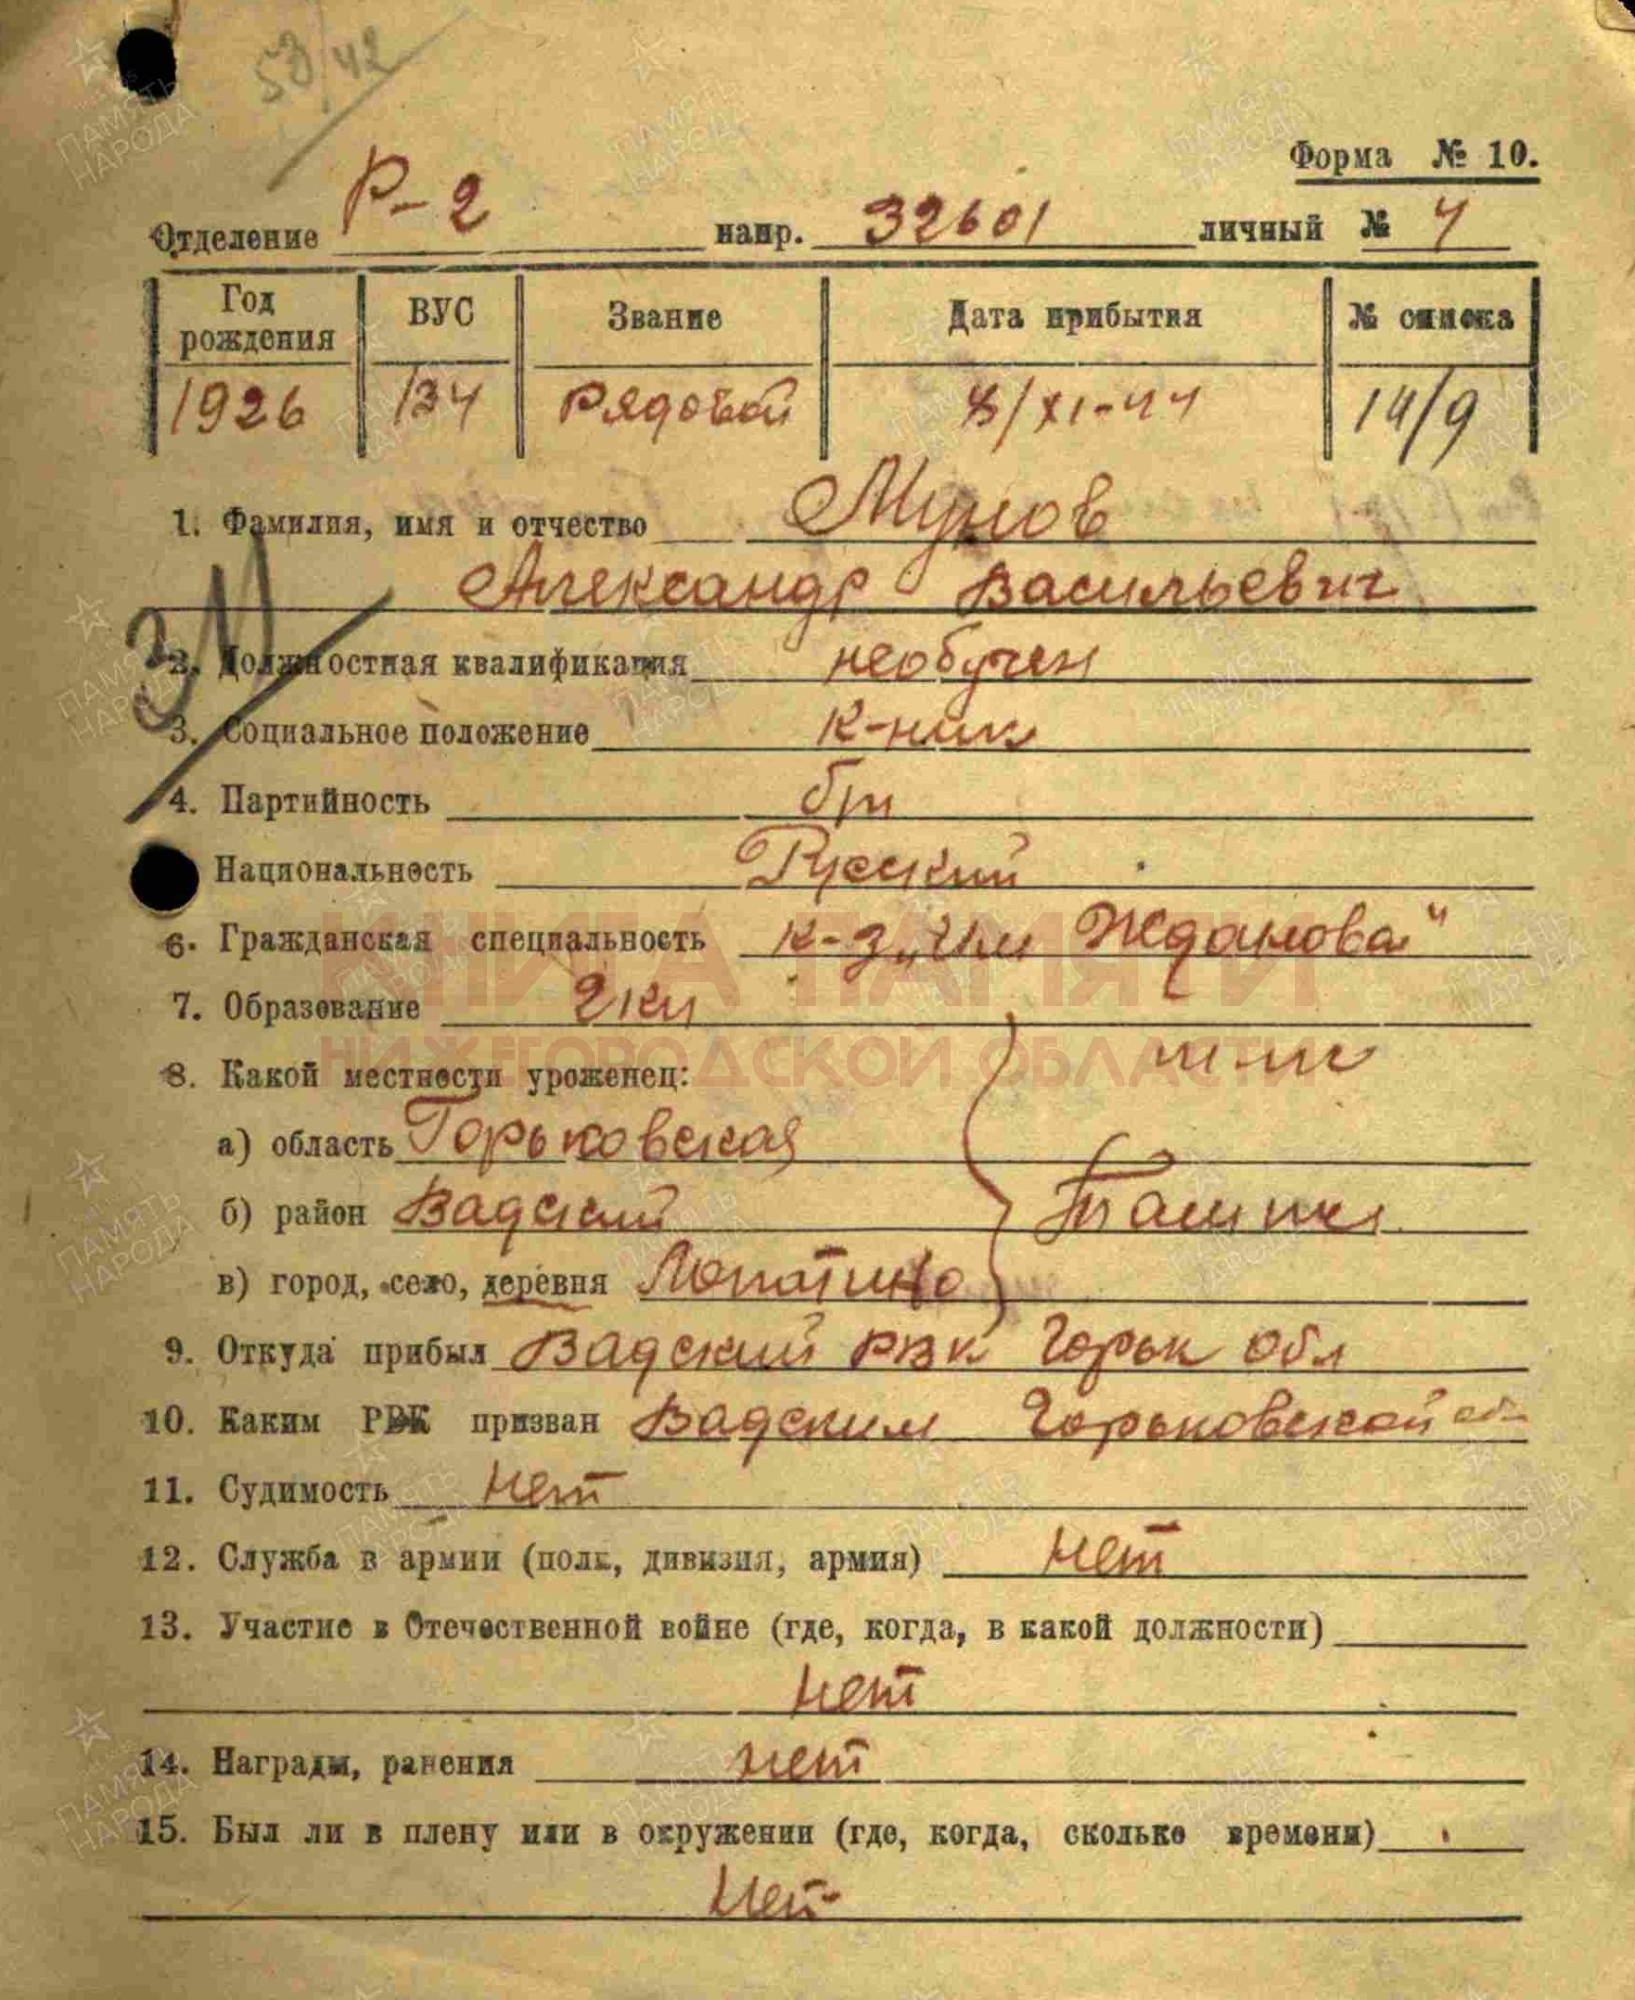 50/42
Форма № 10.
Отделение Р-2 напр. 32601 личный № 4
Год рождения ВУС Звание Дата прибытия № списка
1926 134 Рядовой 8/XI-44 14/9
1. Фамилия, имя и отчество Мунов
Александр Васильевич
2. Должностная квалификация необучен
3. Социальное положение к-ник
4. Партийность б/п
Национальность Русский
6. Гражданская специальность к-з „Им Жданова"
7. Образование 2кл
8. Какой местности уроженец:
а) область Горьковская
б) район Вадский
в) город, село, деревня Лопатино
9. Откуда прибыл Вадский РВК Горьк Обл
10. Каким РВК призван Вадским Горьковской об
11. Судимость нет
12. Служба в армии (полк, дивизия, армия) нет
13. Участие в Отечественной войне (где, когда, в какой должности)
нет
14. Награды, ранения нет
15. Был ли в плену или в окружении (где, когда, сколько времени)
Нет
КНИГА ПАМЯТИ
НИЖЕГОРОДСКОЙ ОБЛАСТИ
ПАМЯТЬ НАРОДА